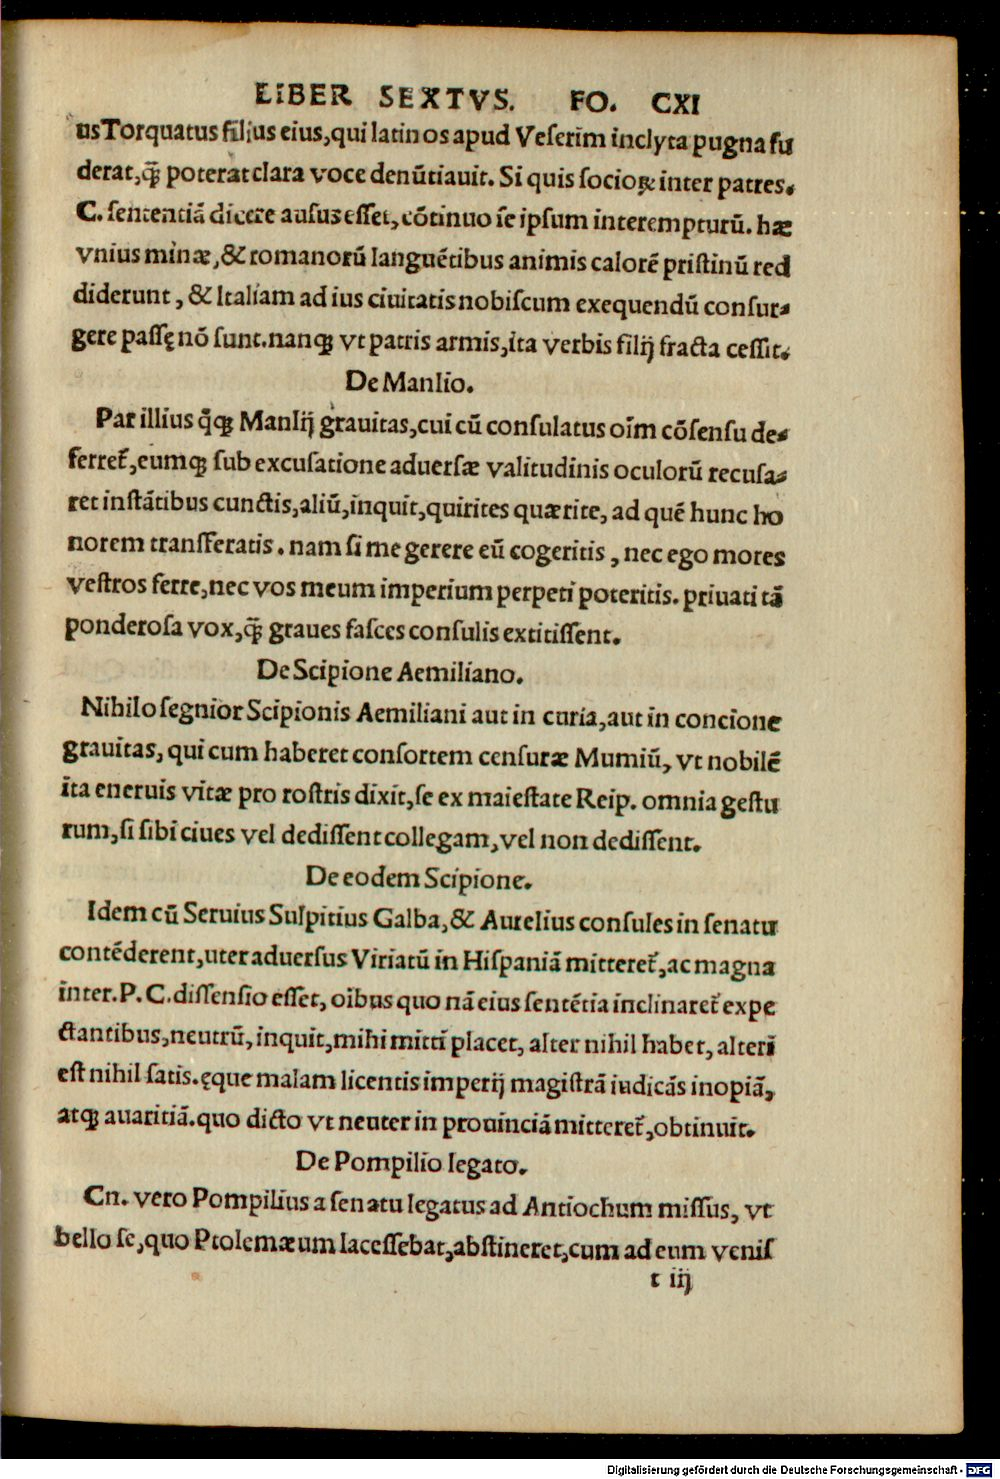 LIBER SEXTVS. FO. CXI
us Torquatus filius eius, qui latinos apud Veserim inclyta pugna fu
derat, q̃ꝫ poterat clara voce denũtiauit. Si quis socioꝝ inter patres.
C. sententiã dicere ausus esset, cõtinuo se ipsum interempturũ. hæ
vnius minæ, & romanorũ languẽtibus animis calorẽ pristinũ red
diderunt, & Italiam ad ius ciuitatis nobiscum exequendũ consur-
gere passę nõ sunt. nanqꝫ vt patris armis, ita verbis filij fracta cessit.
De Manlio.
Par illius q̃qꝫ Manlij grauitas, cui cũ consulatus oĩm cõsensu de-
ferret᷑, eumqꝫ sub excusatione aduersæ valitudinis oculorũ recusa-
ret instãtibus cunctis, aliũ, inquit, quirites quærite, ad quẽ hunc ho
norem transferatis. nam si me gerere eũ cogeritis, nec ego mores
vestros ferre, nec vos meum imperium perpeti poteritis. priuati tã
ponderosa vox, q̃ꝫ graues fasces consulis extitissent.
De Scipione Aemiliano.
Nihilo segnior Scipionis Aemiliani aut in curia, aut in concione
grauitas, qui cum haberet consortem censuræ Mumiũ, vt nobilẽ
ita eneruis vitæ pro rostris dixit, se ex maiestate Reip. omnia gestu
rum, si sibi ciues vel dedissent collegam, vel non dedissent.
De eodem Scipione.
Idem cũ Seruius Sulpitius Galba, & Aurelius consules in senatu
contẽderent, uter aduersus Viriatũ in Hispaniã mitteret᷑, ac magna
inter. P. C. dissensio esset, oĩbus quo nã eius sentẽtia inclinaret᷑ expe
ctantibus, neutrũ, inquit, mihi mitti placet, alter nihil habet, alteri
est nihil satis. ęque malam licentis imperij magistrã iudicãs inopiã,
atqꝫ auaritiã. quo dicto vt neuter in prouinciã mitteret᷑, obtinuit.
De Pompilio legato.
Cn. vero Pompilius a senatu legatus ad Antiochum missus, vt
bello se, quo Ptolemæum lacessebat, abstineret, cum ad eum venis
t iij
Digitalisierung gefördert durch die Deutsche Forschungsgemeinschaft - DFG